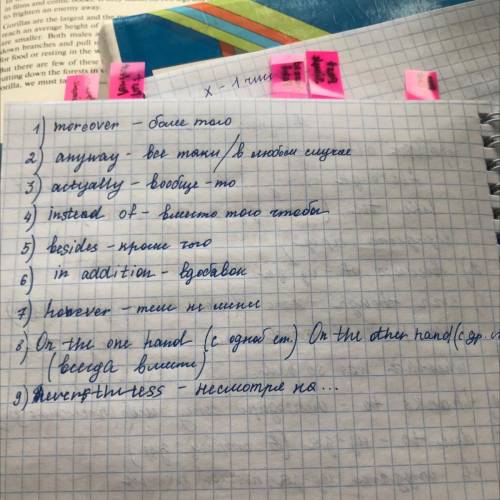 to frighten an enemy away.
Gorillas are the largest and the
reach an average height of
are smaller. Both males
down branches and pull
for food or resting in the
But there are few of these
cutting down the forests in
gorilla, we must
1) moreover – более того
2) anyway – все таки / в любом случае
3) actyally – вообще-то
4) instead of – вместо того чтобы
5) besides – кроме того
6) in addition – вдобавок
7) however – тем не мение
8) On the one hand (с одной ст.) On the other hand (с др.
(всегда вместе)
9) neverstheless – несмотря на...